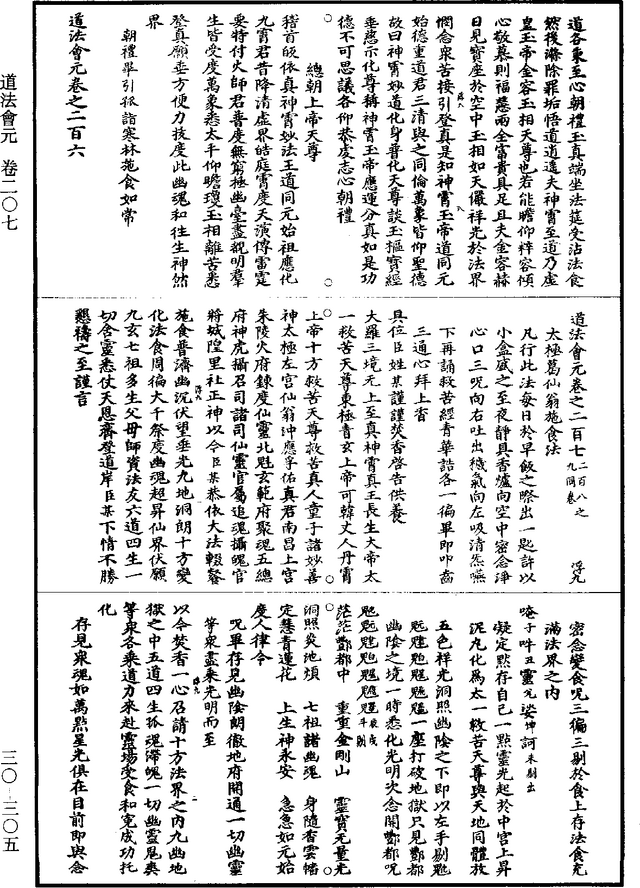 道法會元　卷二〇七
三〇—三〇五
道各秉至心朝禮玉真端坐法筵受沾法食
然後滌除罪垢悟道逍遙夫神霄至道乃虛
皇玉帝金容玉相天尊也若能瞻仰粹容傾
心敬慕則福慧兩全富貴具足且夫金容赫
日見寶座於空中玉相如天儼祥光於法界
憫念衆苦接引登真是知神霄玉帝道同元
始德重道君三清與之同倫萬象皆仰聖德
故曰神霄妙道化身普化天尊談玉樞寶經
垂慈示化尊稱神霄玉帝應運分真如是功
德不可思議各仰恭虔志心朝禮
總朝上帝天尊
稽首皈依真神霄妙法王道同元始祖應化
九霄君昔降清虛界皓庭霄度天演傳雷霆
要特付火師君普度無窮極幽臺盡覩明羣
生皆受度萬象悉太平仰瞻瓊玉相離苦悉
登真願垂方便力技度此幽魂和往生神然
朝禮舉引孤詣寒林施食如常
界
道法會元卷之二百六
道法會元卷之二百七　二百八之九同卷　浮九
太極葛仙翁施食法
凡行此法每日於早飯之際出一匙許以
小盒盛之至夜靜具香爐向空中密念淨
心口三呪向右吐出穢氣向左吸清炁嚥
下再誦救苦經青華誥各一徧畢即叩齒
三通心拜上香
具位臣姓某謹謹焚香啓告供養
大羅三境元上至真神霄真王長生大帝太
一救苦天尊東極青玄上帝可韓丈人丹霄
上帝十方救苦天尊救苦真人童子諸妙善
神太極左宮仙翁沖應孚佑真君南昌上宮
朱陵火府錬度仙靈北魁玄範府聚魂五總
府神虎攝召司諸司仙靈官屬追魂攝魄官
將城隍里社正神以今臣某恭依大法輟餐
施食普濟幽沉伏望垂光九地洞朗十方變
化法食周徧大千祭度幽魂超昇仙界伏願
九玄七祖多生父母師資法友六道四生一
切含靈悉仗天恩齊登道岸臣某下情不勝
懇禱之至謹言
密念變食呪三徧三剔於食上存法食充
滿法界之内
唵子吽丑靈元娑婢訶未剔出
凝定默存自己一點靈光起於中宮上昇
泥丸化為太一救苦天尊與天地同體放
五色祥光洞照幽陰之下即以左手剔
一塵打破地獄只見酆都
幽陰之境一時悉化光明次念開酆都呪
茫茫酆都中　重重金剛山　靈寶无量光
洞照炎池煩　七祖諸幽魂　身隨香雲幡
定慧青蓮花　上生神永安　急急如元始
度人律令
呪畢存見幽陰朗徹地府開通一切幽靈
等衆靈乘光明而至
以今焚香一心召請十方法界之内九幽地
獄之中五道四生孤魂滯魄一切幽靈愿奭
等衆各乘道力來赴靈場受食和寃成功托
化
存見衆魂如萬點星光俱在目前即與念